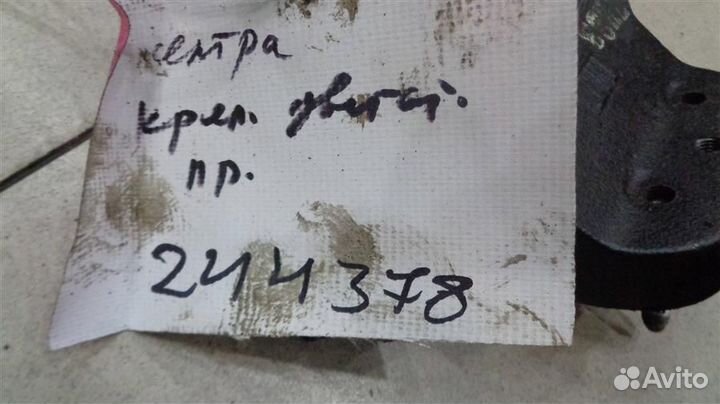 центра
креп. двигат.
пр.
244378
Avito